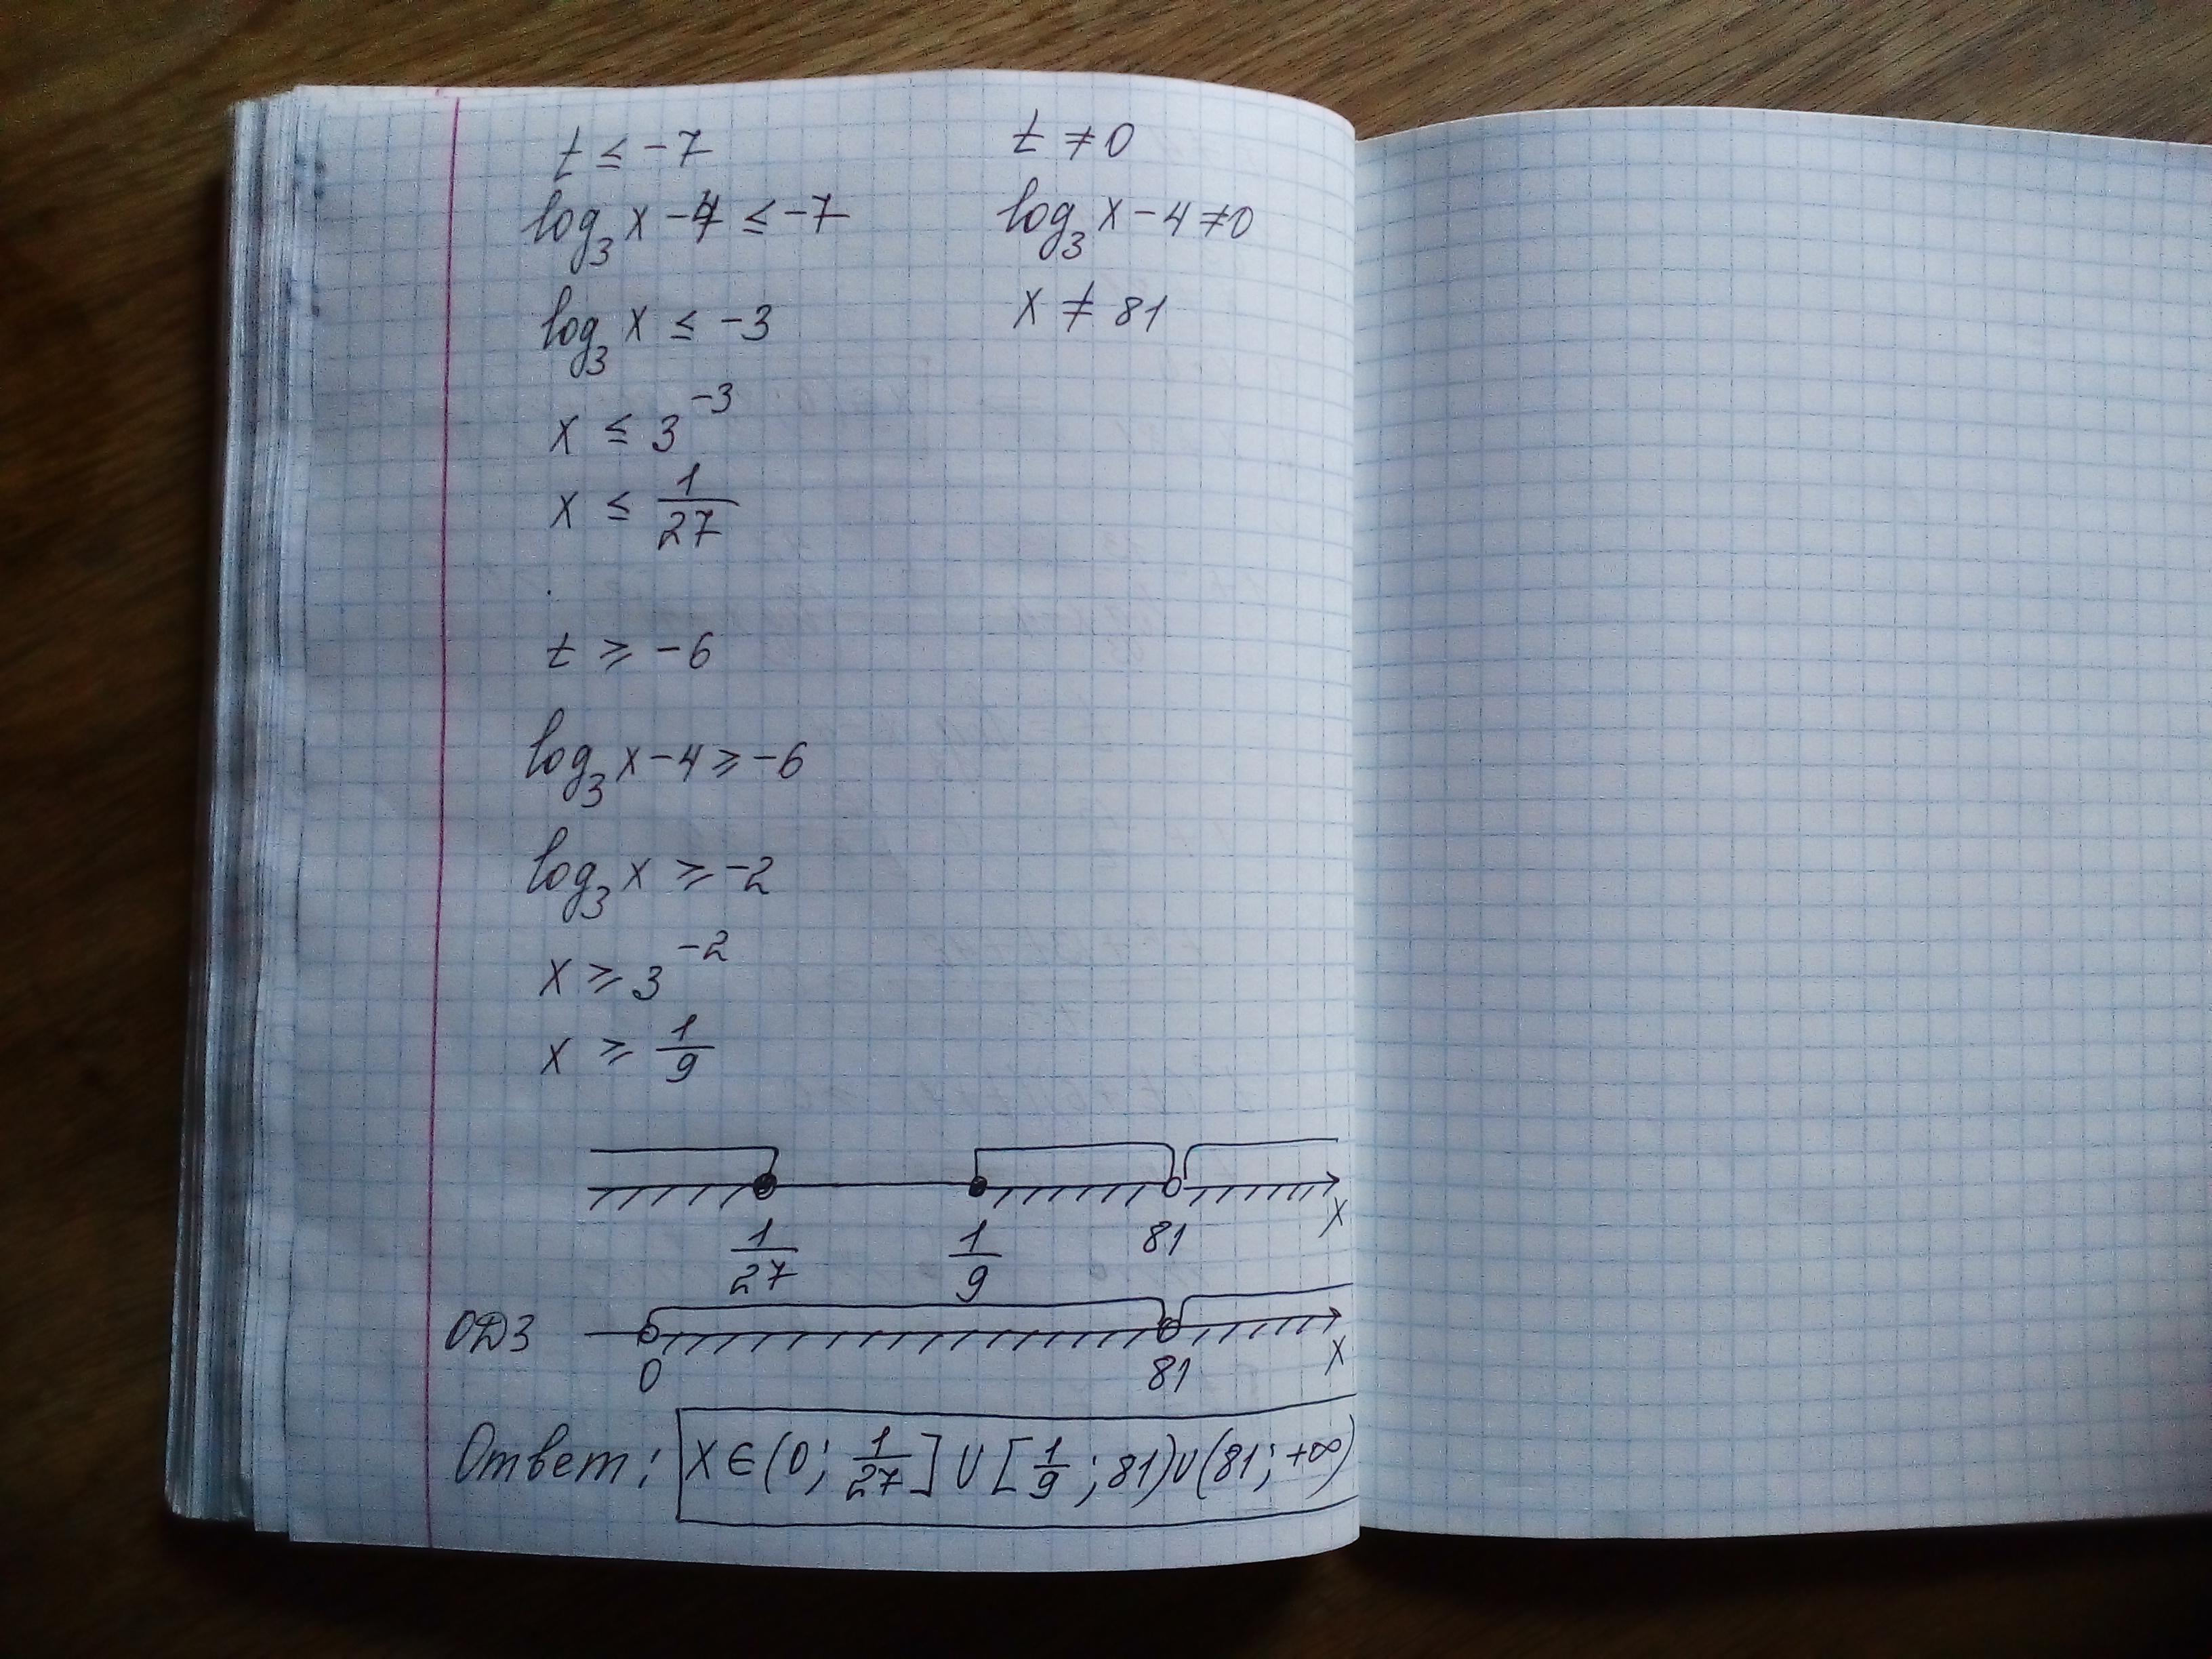 t ≤ -7
log₃ x - 4 ≤ -7
log₃ x ≤ -3
x ≤ 3⁻³
x ≤ 1/27
t ≠ 0
log₃ x - 4 ≠ 0
x ≠ 81
t ≥ -6
log₃ x - 4 ≥ -6
log₃ x ≥ -2
x ≥ 3⁻²
x ≥ 1/9
1/27 1/9 81 x
ОДЗ 0 81 x
Ответ: x ∈ (0; 1/27] ∪ [1/9; 81) ∪ (81; +∞)